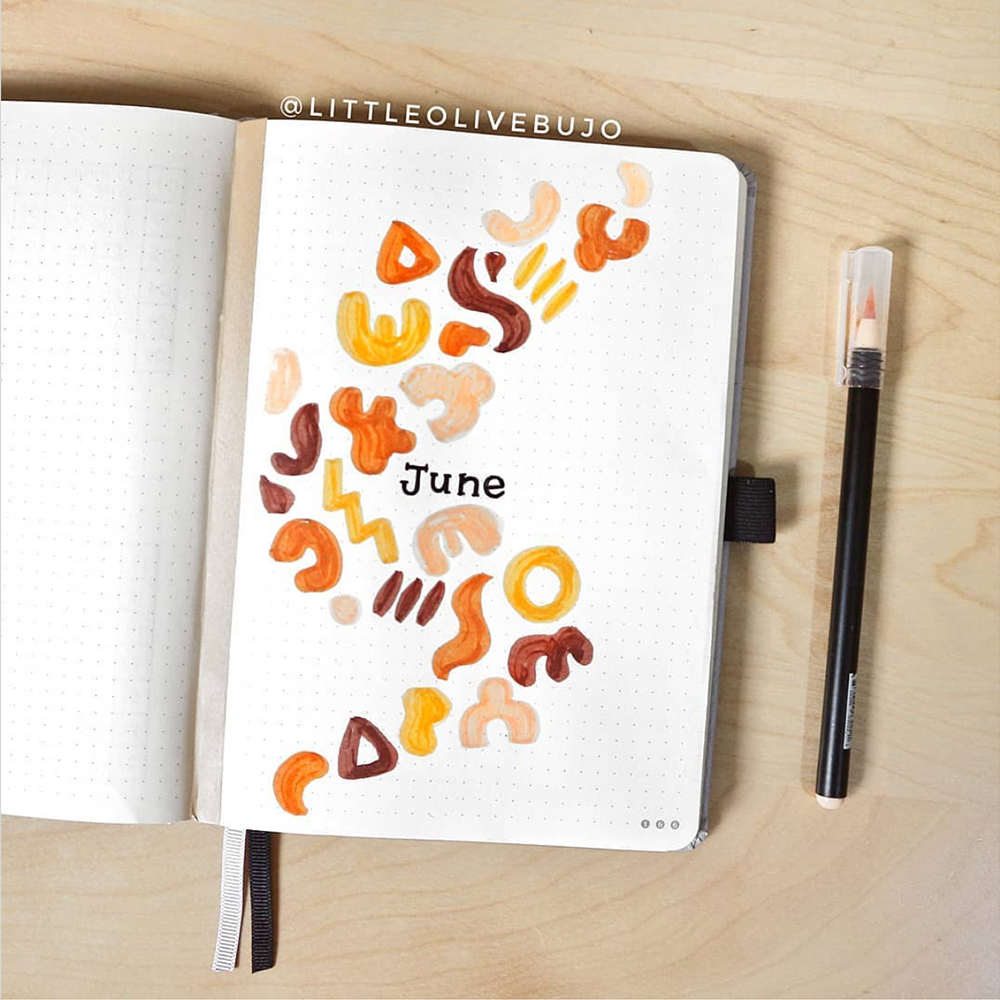 @LITTLEOLIVEBUJO
June
166